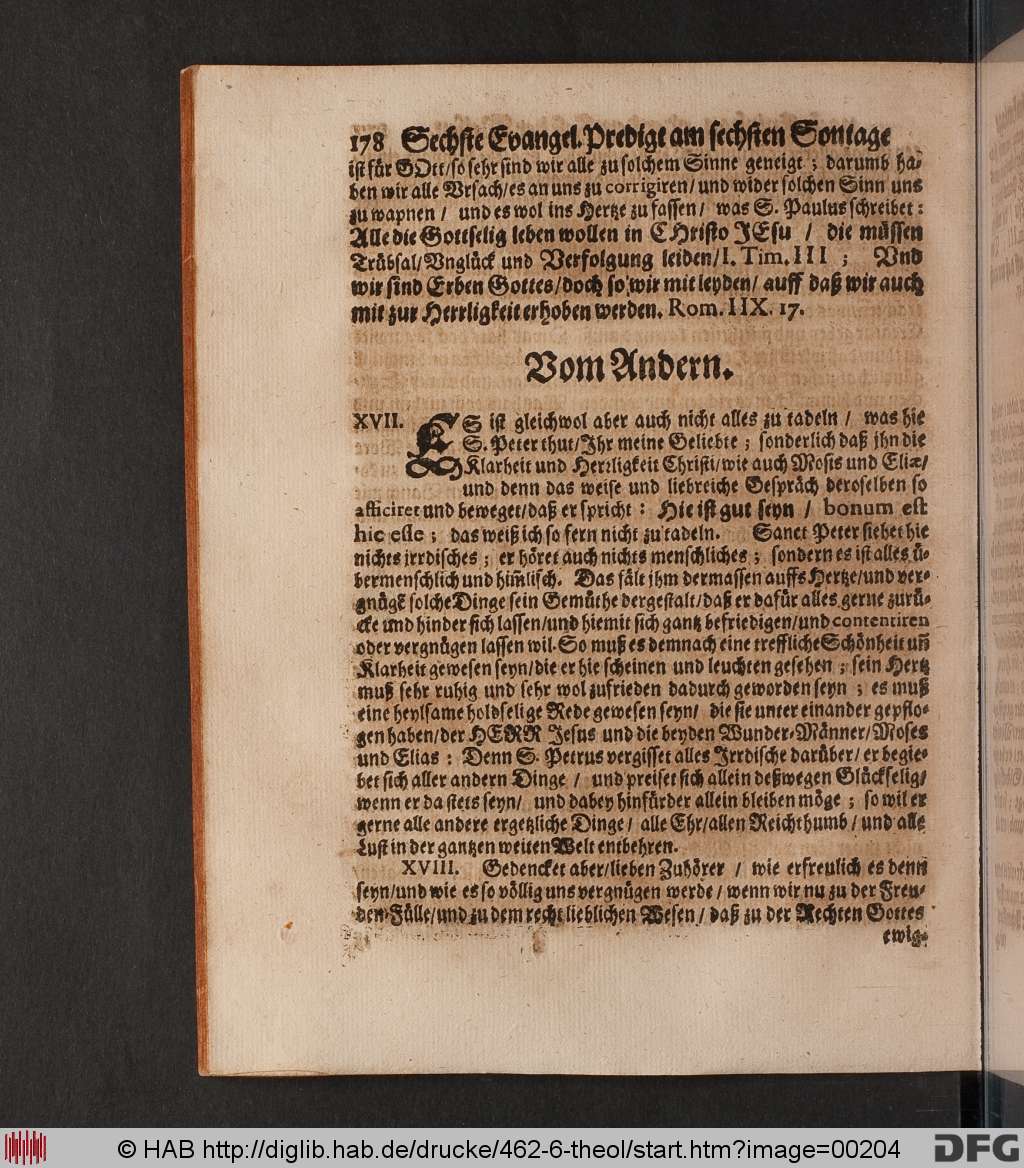 178 Sechste Evangel. Predigt am sechsten Sontage
ist für GOtt/so sehr sind wir alle zu solchem Sinne geneigt; darumb ha-
ben wir alle Vrsach/es an uns zu corrigiren/und wider solchen Sinn uns
zu wapnen / und es wol ins Hertze zu fassen/ was S. Paulus schreibet:
Alle die Gottselig leben wollen in CHristo JEsu / die müssen
Trübsal/Vnglück und Verfolgung leiden/I. Tim. III ; Vnd
wir sind Erben Gottes/doch so wir mit leyden/ auff daß wir auch
mit zur Herrligkeit erhoben werden. Rom. IIX. 17.
Vom Andern.
XVII. ES ist gleichwol aber auch nicht alles zu tadeln / was hie
S. Peter thut/Jhr meine Geliebte ; sonderlich daß jhn die
Klarheit und Herrligkeit Christi/wie auch Mosis und Eliæ/
und denn das weise und liebreiche Gespräch deroselben so
afficiret und beweget/daß er spricht: Hie ist gut seyn / bonum est
hic esse ; das weiß ich so fern nicht zu tadeln. Sanct Peter siehet hie
nichts irrdisches ; er höret auch nichts menschliches ; sondern es ist alles ü-
bermenschlich und him̃lisch. Das fält jhm dermassen auffs Hertze/und ver-
gnügẽ solche Dinge sein Gemüthe dergestalt/daß er dafür alles gerne zurü-
cke und hinder sich lassen/und hiemit sich gantz befriedigen/und contentiren
oder vergnügen lassen wil. So muß es demnach eine treffliche Schönheit uñ
Klarheit gewesen seyn/die er hie scheinen und leuchten gesehen ; sein Hertz
muß sehr ruhig und sehr wol zufrieden dadurch geworden seyn ; es muß
eine heylsame holdselige Rede gewesen seyn/ die sie unter einander gepflo-
gen haben/der HERR Jesus und die beyden Wunder-Männer/Moses
und Elias: Denn S. Petrus vergisset alles Jrrdische darüber/er begie-
bet sich aller andern Dinge / und preiset sich allein deßwegen Glückselig/
wenn er da stets seyn/ und dabey hinfürder allein bleiben möge ; so wil er
gerne alle andere ergetzliche Dinge / alle Ehr/allen Reichthumb / und alle
Lust in der gantzen weiten Welt entbehren.
XVIII. Gedencket aber/lieben Zuhörer / wie erfreulich es denn
seyn/und wie es so völlig uns vergnügen werde / wenn wir nu zu der Freu-
den-Fülle/und zu dem recht lieblichen Wesen / daß zu der Rechten Gottes
ewig-
© HAB http://diglib.hab.de/drucke/462-6-theol/start.htm?image=00204
DFG